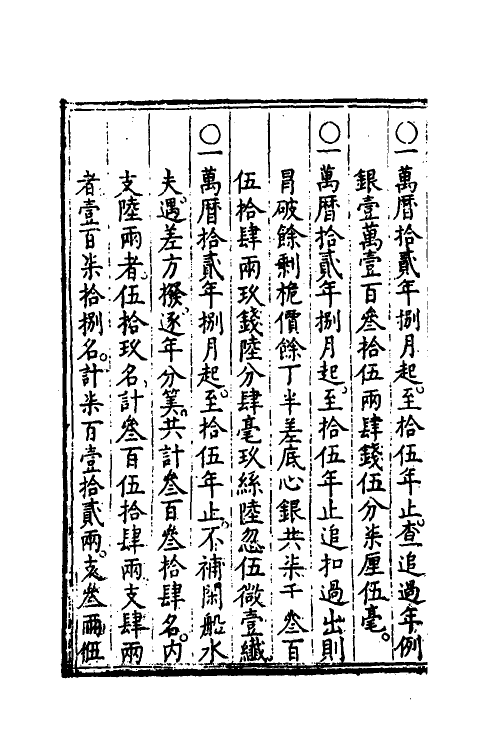 〇一萬曆拾貳年捌月起至拾伍年止查追過年例
銀壹萬壹百叁拾伍兩肆錢伍分柒厘伍毫
〇一萬曆拾貳年捌月起至拾伍年止追扣過出則
胃破餘剩桅價餘丁半差底心銀共柒千叁百
伍拾肆兩玖錢陸分肆毫玖絲陸忽伍微壹纖
〇一萬曆拾貳年捌月起至拾伍年止不補閑船水
夫遇差方撥逐年分筭共計叁百叁拾肆名內
支陸兩者伍拾玖名計叁百伍拾肆兩支肆兩
者壹百柒拾捌名計柒百壹拾貳兩支叁兩伍